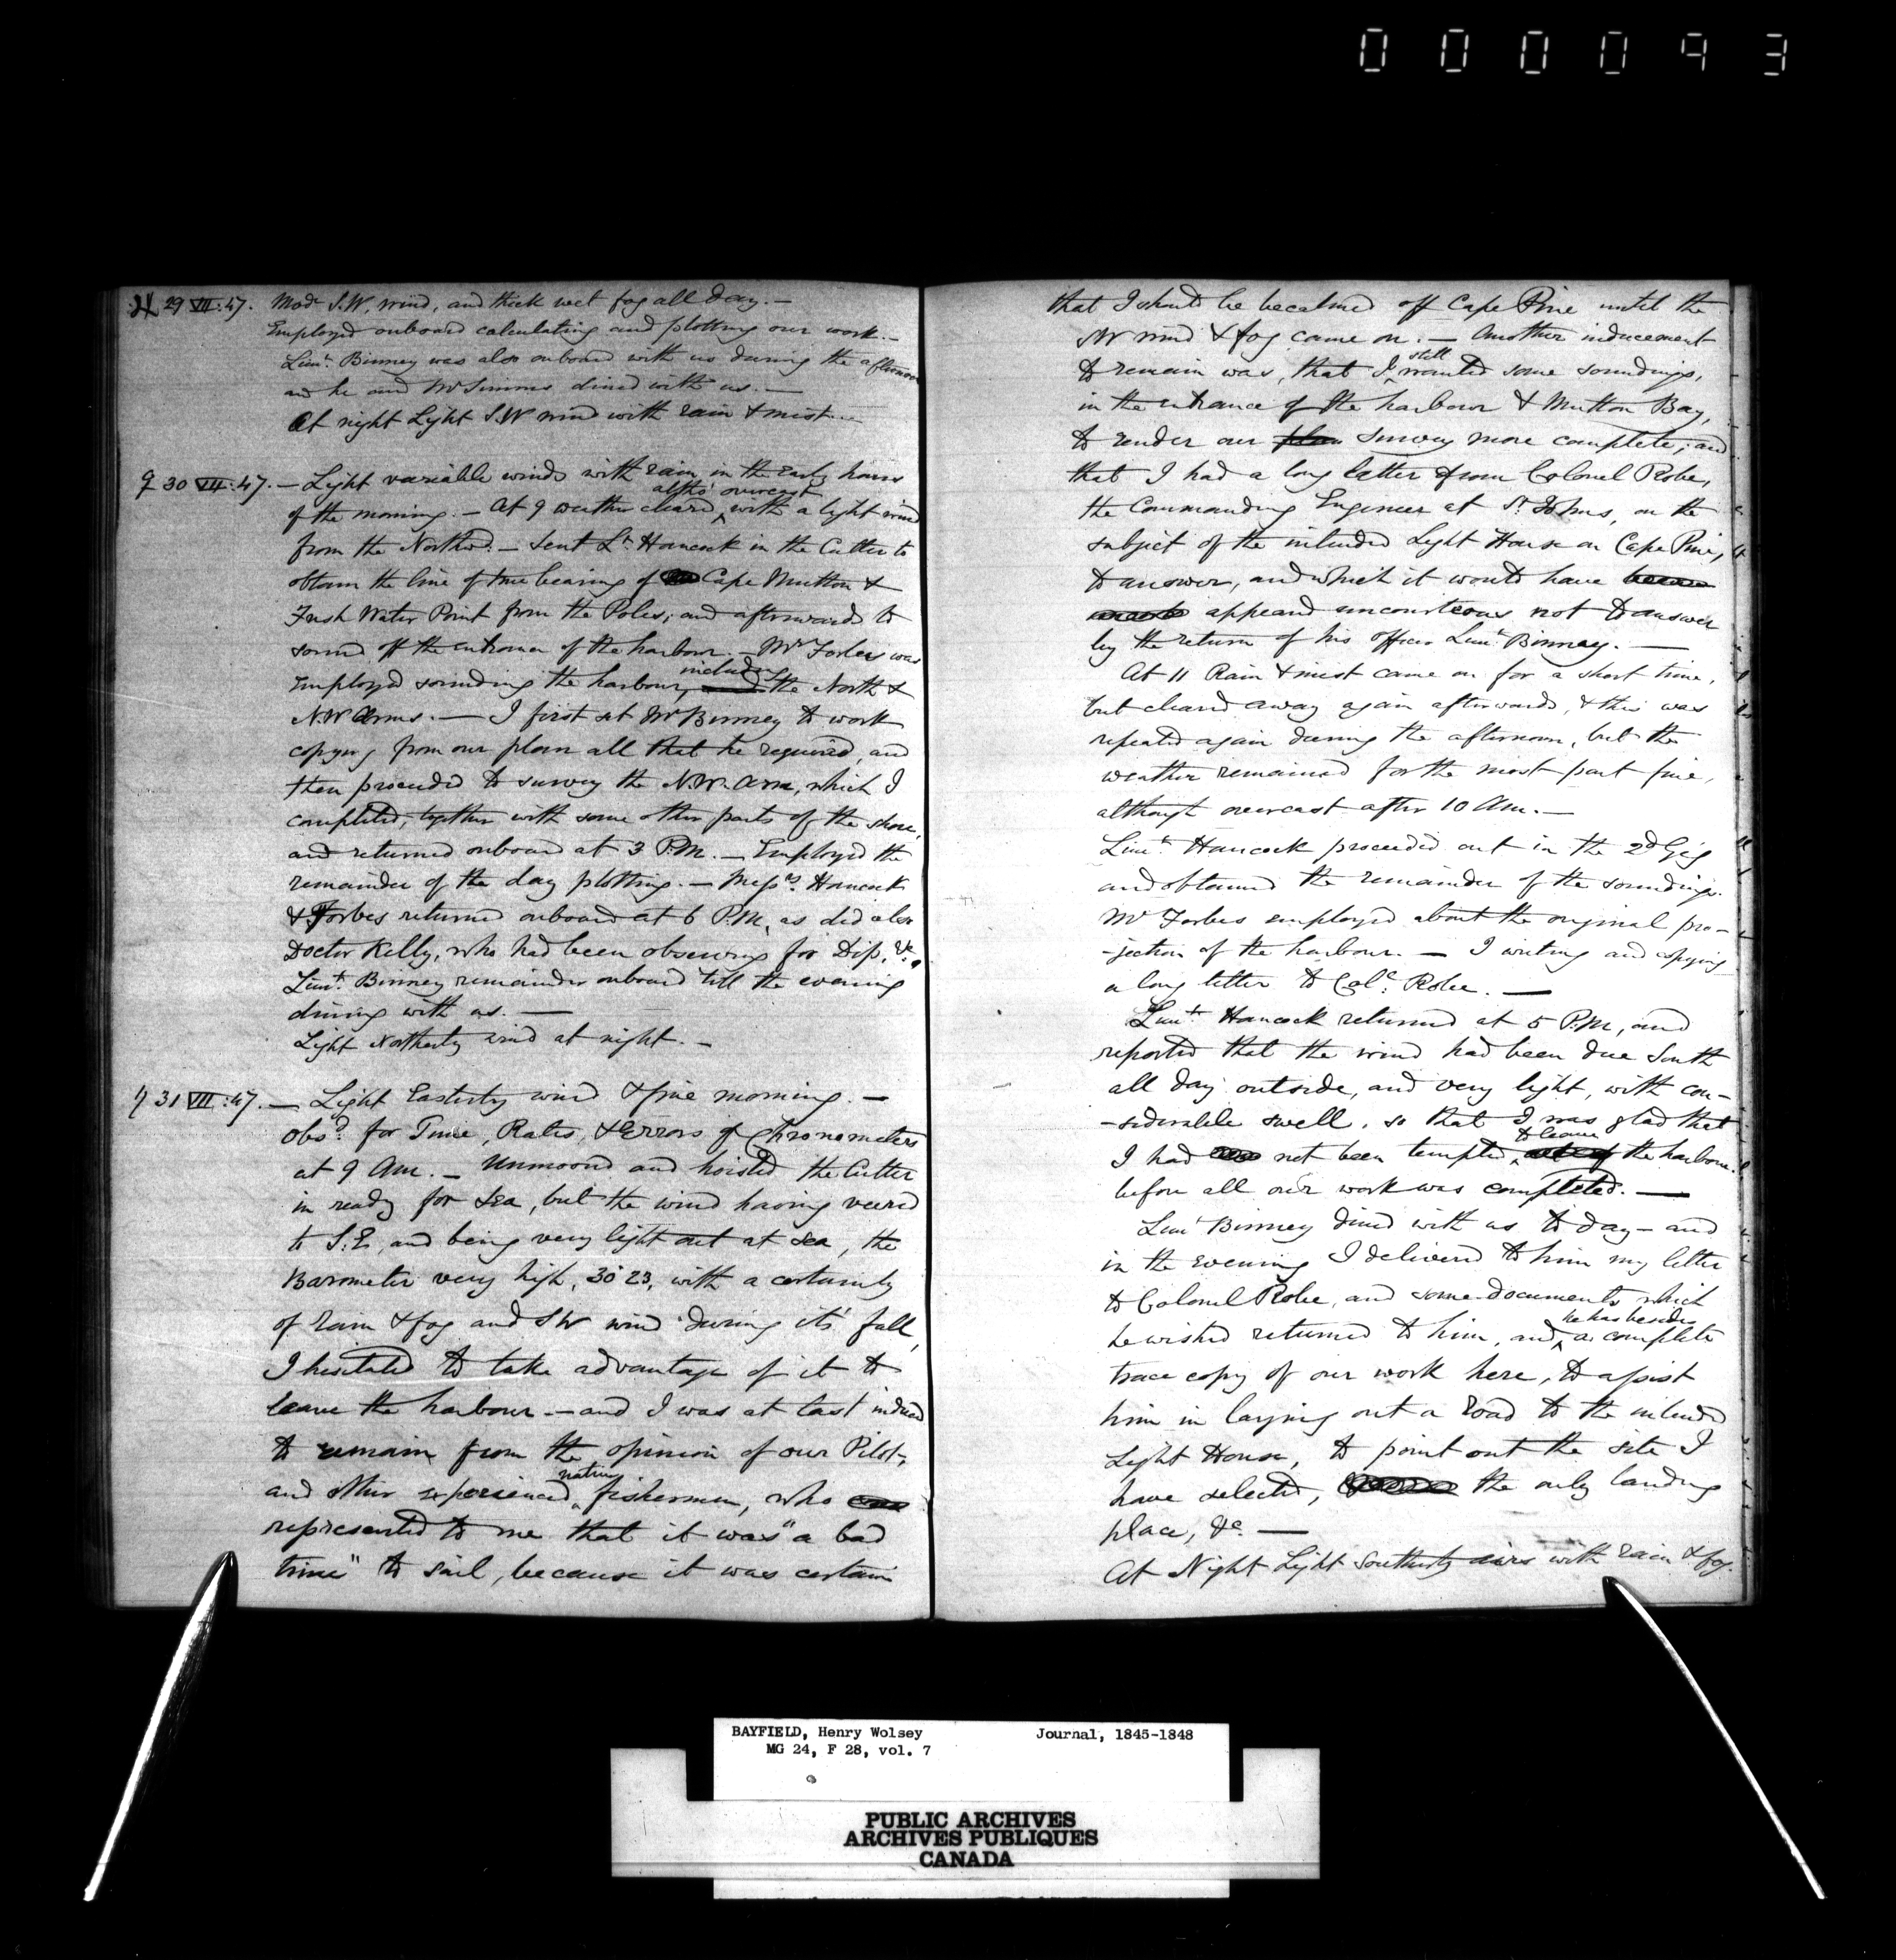 000093
♃ 29 VII:47. Modᵉ S.W. wind, and thick wet fog all day. —
Employed onboard calculating and plotting our work. —
Lieuᵗ. Binney was also onboard with us during the afternoon
and he and Mr Simms dined with us. —
At night Light S.W wind with rain & mist. —
♀ 30 VII:47. — Light variable winds with rain in the Early hours
of the morning. — At 9 weather cleared, altho' overcast with a light wind
from the Northᵈ. — Sent Lᵗ. Hancock in the Cutter to
obtain the line of true bearing of Cape Mutton &
Fresh Water Point from the Poles; and afterwards to
sound off the entrance of the harbour. — Mʳ Forbes was
Employed sounding the harbour, including the North &
N.W Arms. — I first set Mʳ Binney to work
copying from our plan all that he required, and
then proceeded to survey the N.W. Arm, which I
completed, together with some other parts of the shore,
and returned onboard at 3 P.M. — Employed the
remainder of the day plotting. — Messʳˢ. Hancock
& Forbes returned onboard at 6 P.M, as did also
Doctor Kelly, who had been observing for Dip, &c.
Lieuᵗ. Binney remained onboard till the evening
dining with us. —
Light Northerly wind at night. —
♄ 31 VII:47. — Light Easterly wind & fine morning. —
Obsᵈ. for Time, Rates, & Errors of Chronometers
at 9 Am. — Unmoored and hoisted the Cutter
in ready for Sea, but the wind having veered
to S.E, and being very light out at sea, the
Barometer very high, 30·23, with a certainty
of rain & fog and SW wind during its' fall,
I hesitated to take advantage of it to
leave the harbour — and I was at last induced
to remain from the opinion of our Pilot,
and other experienced native fishermen, who
represented to me that it was "a bad
time" to sail, because it was certain
that I should be becalmed off Cape Pine until the
SW wind & fog came on. — Another inducement
to remain was, that I still wanted some soundings,
in the entrance of the harbour & Mutton Bay,
to render our plan survey more complete; and
that I had a long letter from Colonel Robe,
the Commanding Engineer at Sᵗ. Johns, on the
subject of the intended Light House on Cape Pine,
to answer, and which it would have
appeared uncourteous not to answer
by the return of his officer Lieuᵗ Binney. —
At 11 Rain & mist came on for a short time,
but cleared away again afterwards, & this was
repeated again during the afternoon, but the
weather remained for the most part fine,
although overcast after 10 Am. —
Lieuᵗ. Hancock proceeded out in the 2ᵈ Gig
and obtained the remainder of the soundings.
Mʳ Forbes employed about the original pro-
-jection of the harbour — I writing and copying
a long letter to Colˡ. Robe. —
Lieuᵗ. Hancock returned at 5 P.M, and
reported that the wind had been due South
all day outside, and very light, with con-
-siderable swell, so that I was glad that
I had not been tempted, to leave the harbour
before all our work was completed. —
Lieuᵗ Binney dined with us to day — and
in the Evening I delivered to him my letter
to Colonel Robe, and some documents which
he wished returned to him, and he has besides a complete
trace copy of our work here, to assist
him in laying out a Road to the intended
Light House, to point out the site I
have selected, the only landing
place, &c. —
At Night Light Southerly airs with rain & fog.
BAYFIELD, Henry Wolsey Journal, 1845-1848
MG 24, F 28, vol. 7
PUBLIC ARCHIVES
ARCHIVES PUBLIQUES
CANADA